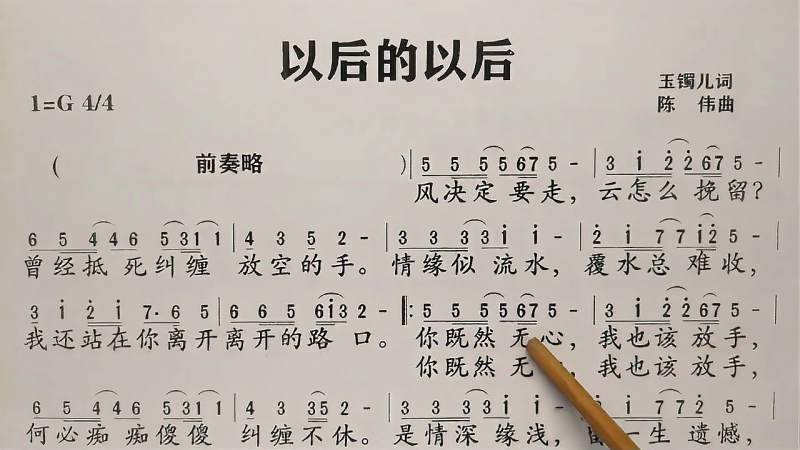 以后的以后
玉镯儿词
1=G 4/4
陈 伟曲
( 前奏略 ) 5 5 5 5 67 5 - 3 i 2 2 67 5 -
风决定 要走，云怎么 挽留？
6 5 4 4 6 5 31 1 4 3 5 2 - 3 3 3 3 i i 2 i 7 7 i2 5 -
曾经抵 死纠缠 放空的手。情缘似 流水，覆水总 难收，
3 i 2 i 7· 6 5 6 6 5 6 i3 2 - 5 5 5 5 67 5 - 3 i 2 2 67 5 -
我还站在你离开离开的路 口。你既然 无心，我也该 放手，
你既然 无 ，我也该 放手，
6 5 4 4 6 5 31 1 4 3 35 2 - 3 3 3 3 i i 2 i 7 7 i2 5 -
何必痴 痴傻傻 纠缠不休。是情深 缘浅， 一生 遗憾，